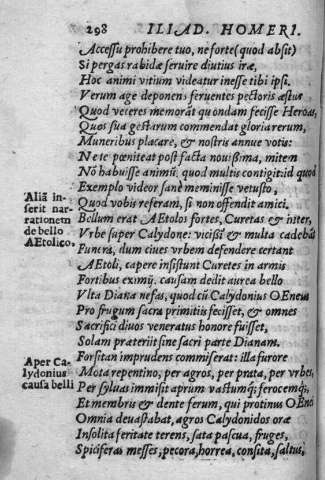 298 ILIAD. HOMERI.
Accessu prohibere tuo, ne forte (quod absit)
Si pergas rabidæ seruire diutius iræ,
Hoc animi vitium videatur inesse tibi ipsi.
Verum age deponens feruentes pectoris æstus
Quod veteres memorāt quondam fecisse Heroas,
Quos sua gestarum commendat gloria rerum,
Muneribus placare, & nostris annue votis:
Ne te pœniteat post facta nouissima, mitem
Nō habuisse animū: quod multis contigit: id quod
Exemplo videor sanè meminisse vetusto,
Aliā in-
serit nar-
rationem
de bello
AEtolico.
Quod vobis referam, si non offendit amici.
Bellum erat AEtolos fortes, Curetas & inter,
Vrbe super Calydone: vicissī & multa cadebāt
Funera, dum ciues vrbem defendere certant
AEtoli, capere insistunt Curetes in armis
Fortibus eximij. causam dedit aurea bello
Vlta Diana nefas, quod cū Calydonius OEneus
Pro frugum sacra primitijs fecisset, & omnes
Sacrifici diuos veneratus honore fuisset,
Solam præteriit sine sacri parte Dianam.
Aper Ca-
lydonius
causa belli
Forsitan imprudens commiserat: illa furore
Mota repentino, per agros, per prata, per vrbes,
Per syluas immisit aprum vastumq; ferocemq;,
Et membris & dente ferum, qui protinus OEnei
Omnia deuastabat, agros Calydonidos oræ
Insolita feritate terens, sata pascua, fruges,
Spiciferas messes, pecora, horrea, consita, saltus,